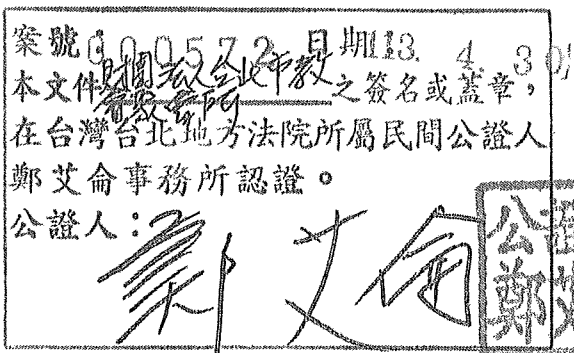 案號：000572 日期113. 4. 30
本文件財團法人台北市教會聚會所之簽名或蓋章，
在台灣台北地方法院所屬民間公證人
鄭艾侖事務所認證。
公證人：鄭艾侖
公證
鄭艾